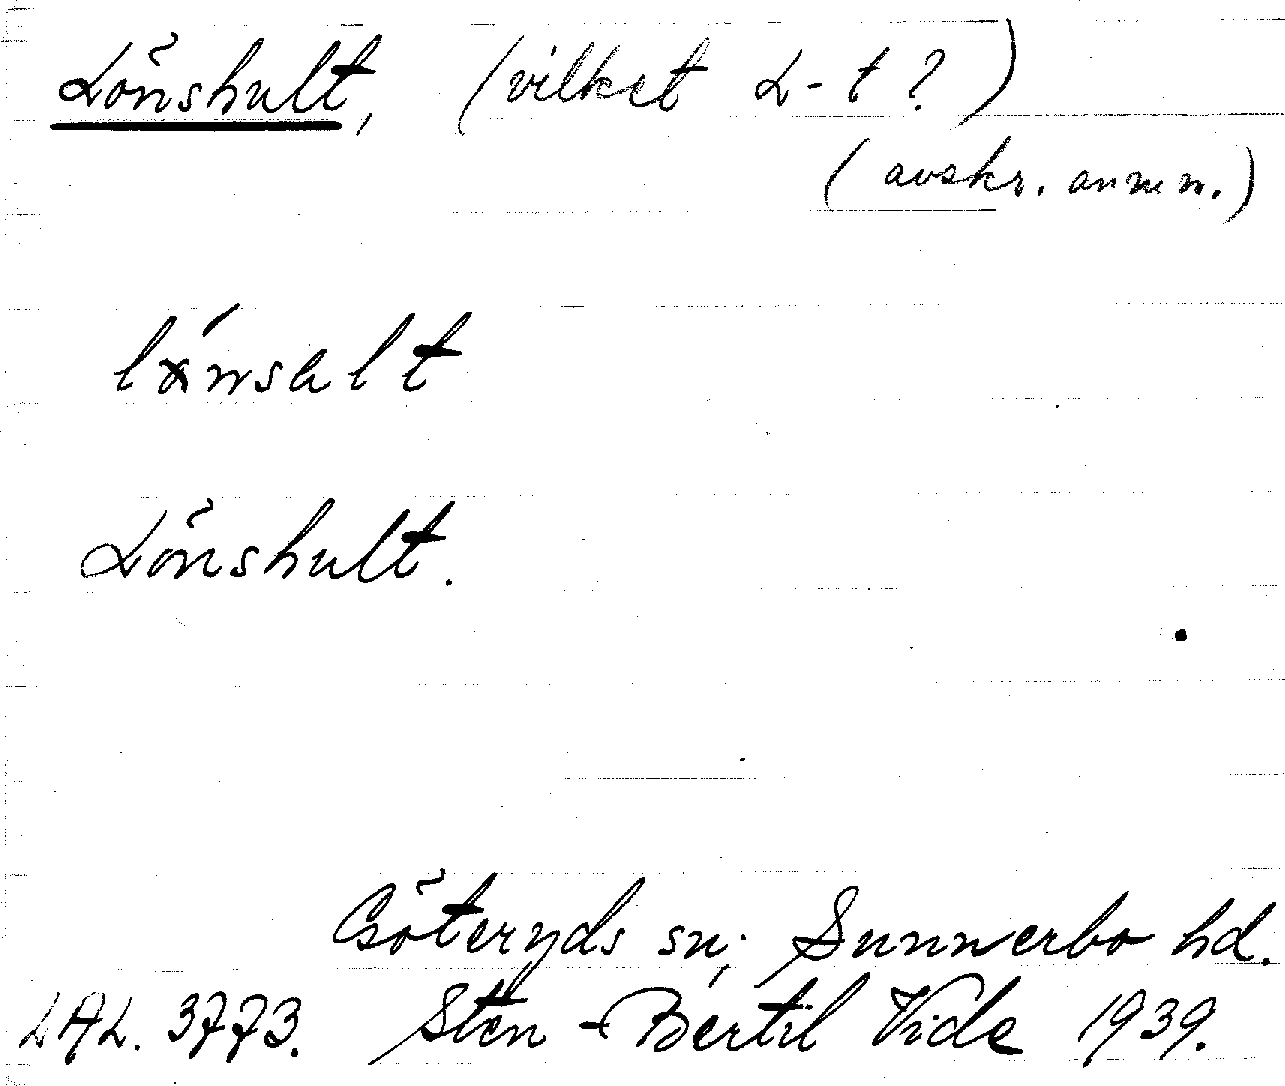 Lönshult, (vilket L-t?)
(avskr. anm.)
Lönshult.
Göteryds sn; Sunnerbo hd.
LAL. 3773. Sten-Bertil Vide 1939.